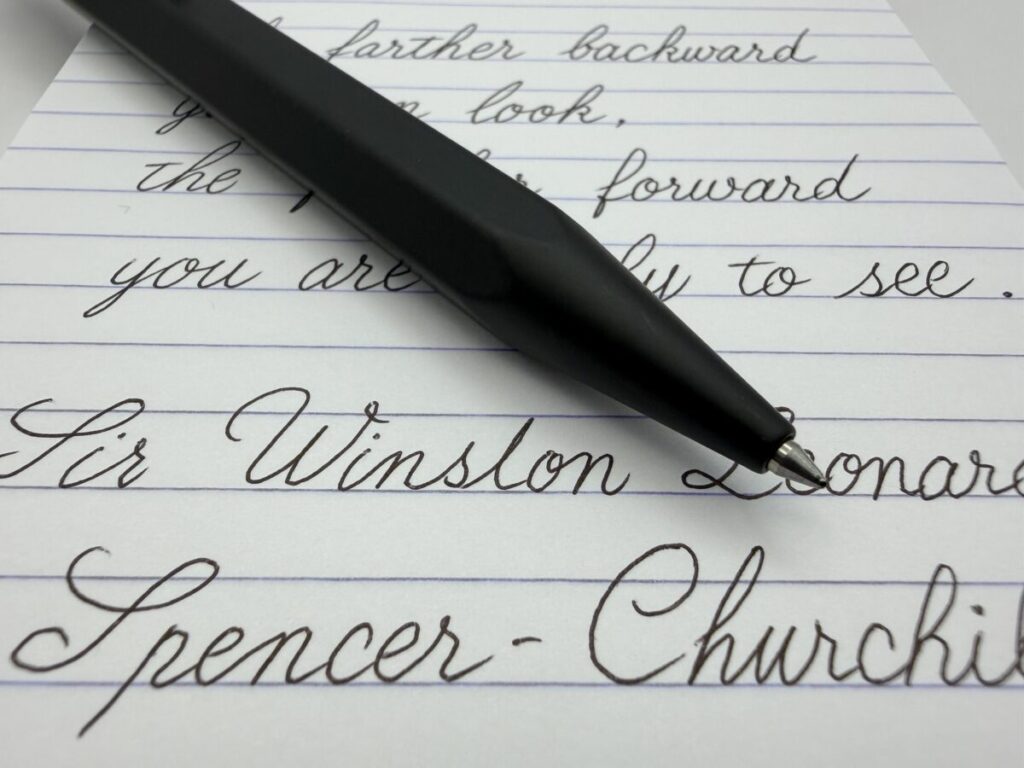 farther backward
look,
the forward
you are to see.
Sir Winston Leonard
Spencer-Churchil